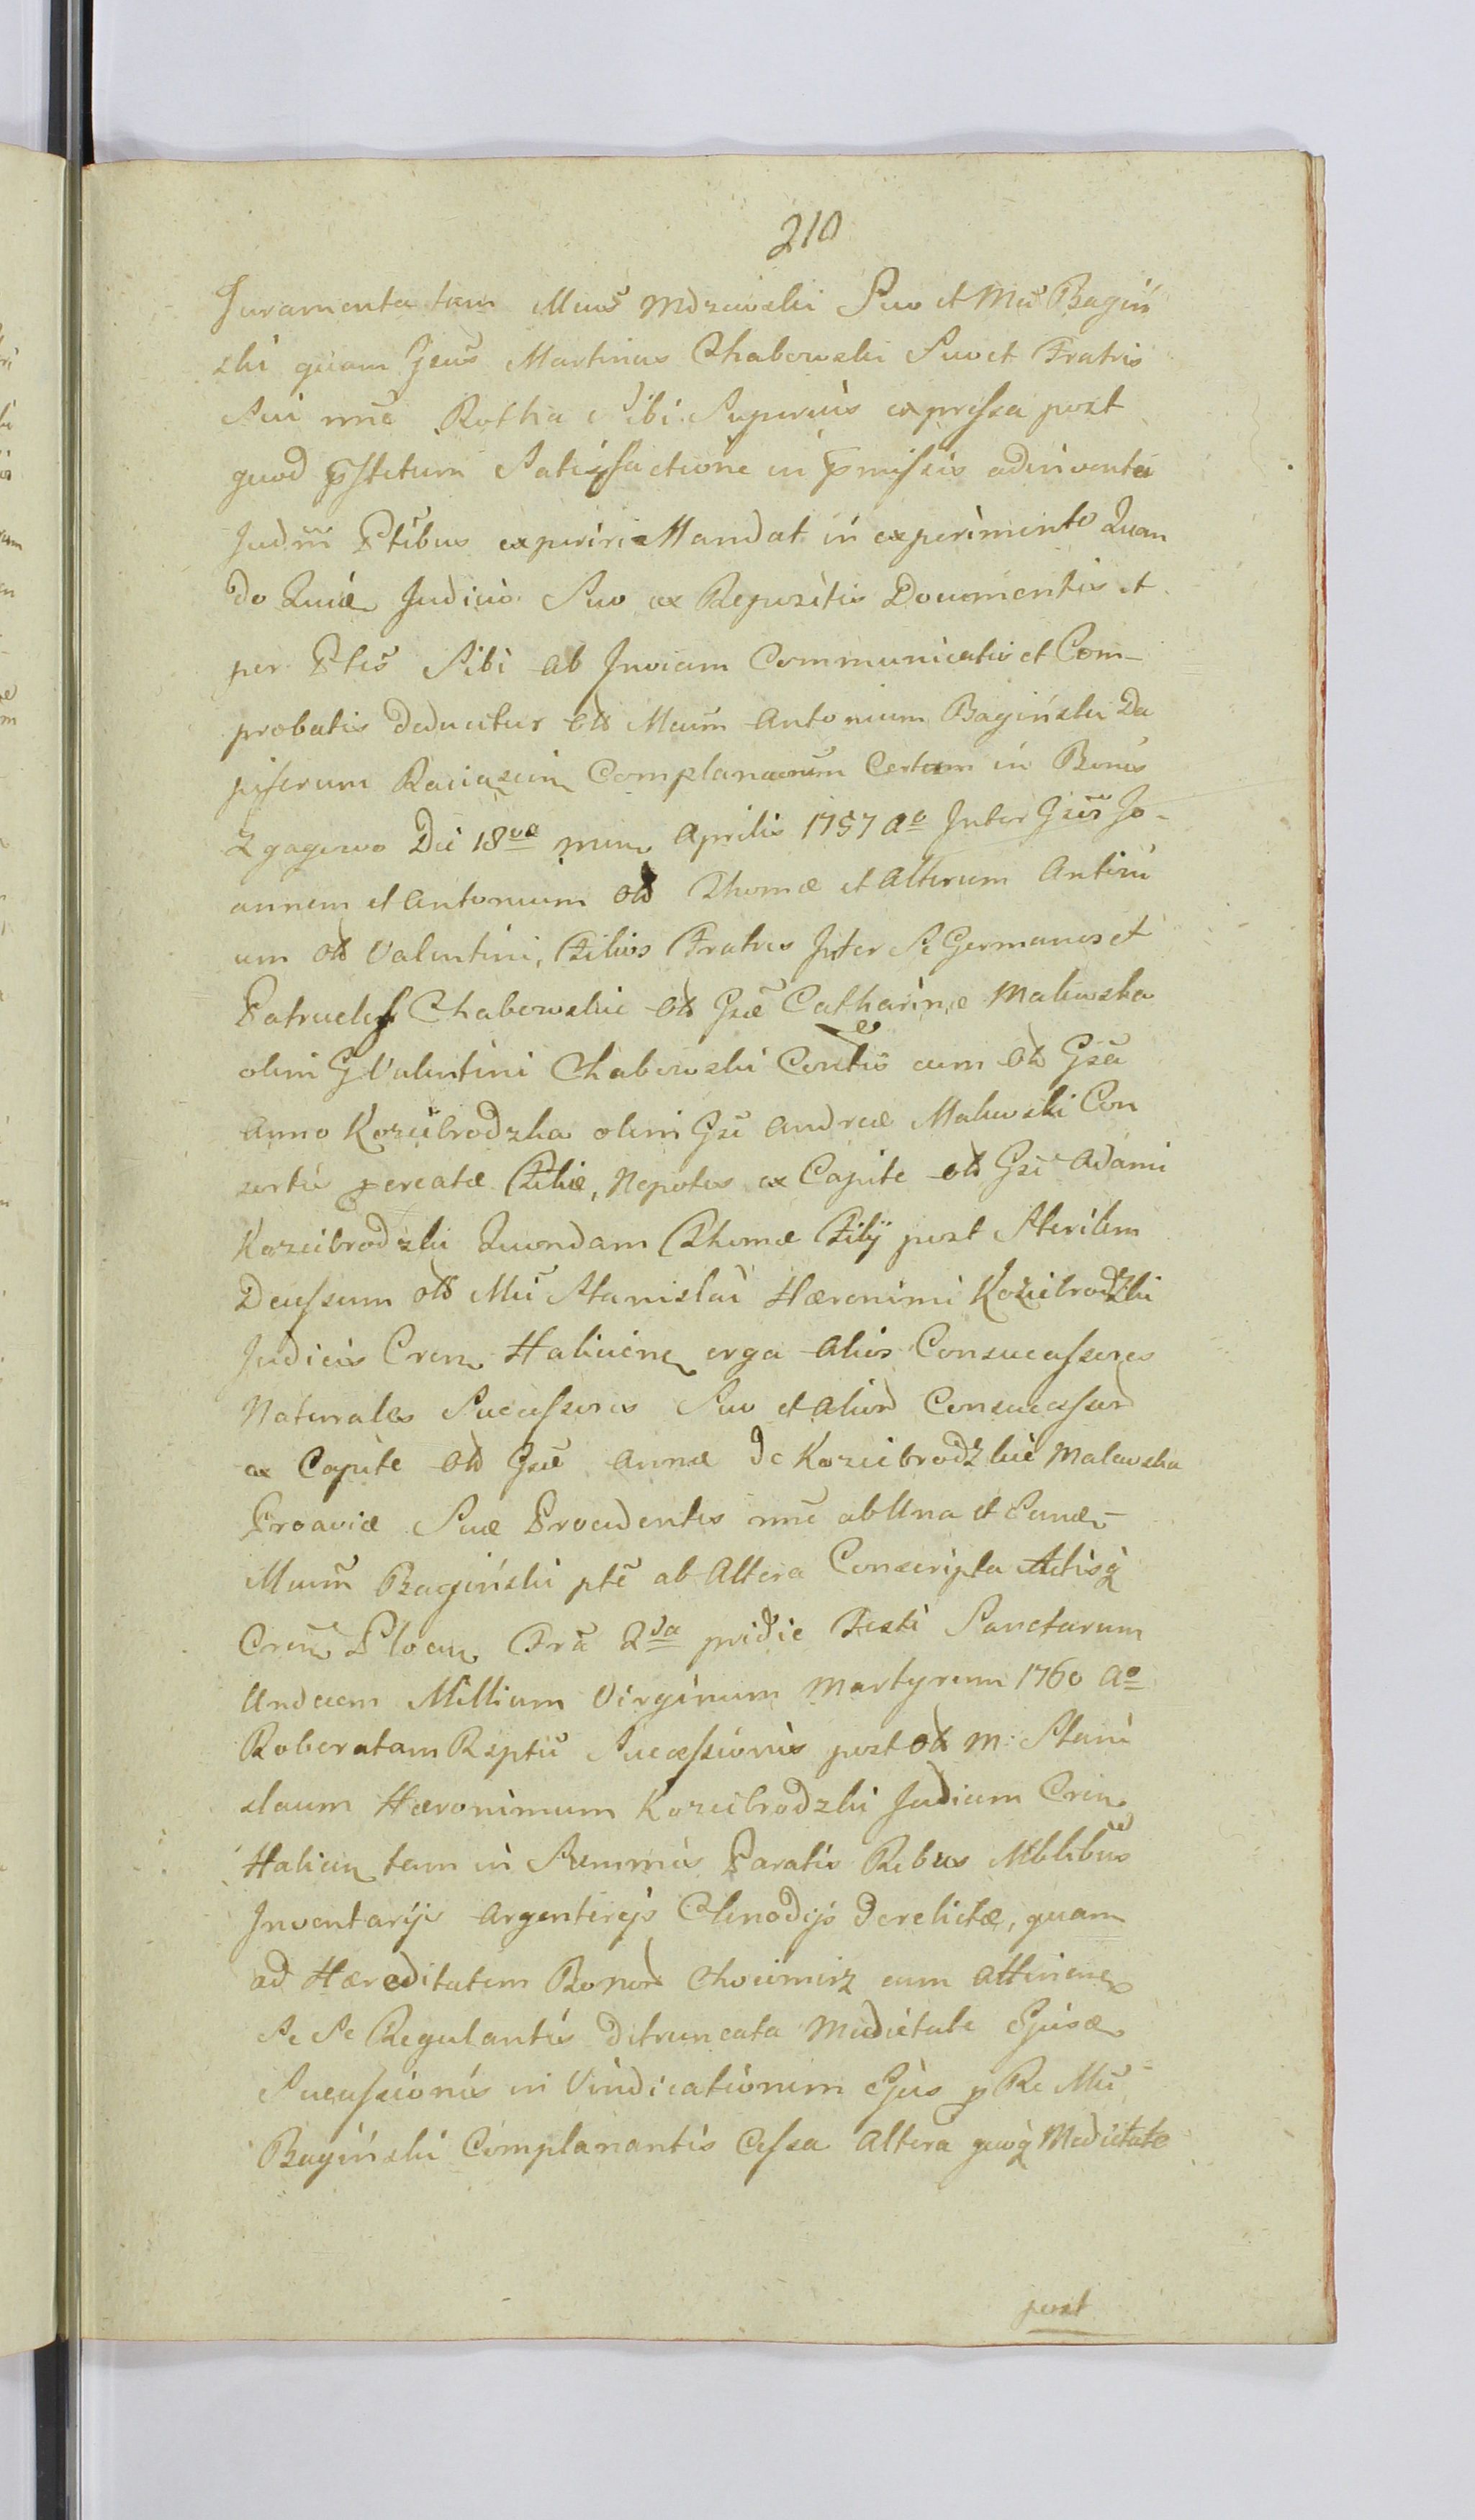 210
Juramenta tam Mcus Mdzewski Suo et Mci Bagiń
ski quam Gsus Martinus Chabowski Suo et Fratris
Sui nne Rotha Sibi Superius expressa post
quod pstitum Satisfactione in pmissis adinventa
Judm Ptibus experiri Mandat in experimento Quan
do Quidem Judicio Suo ex Repositis Documentis et
per Ptes Sibi ab Invicem Communicatis et Com-
probatis deducitur olim Mcum Antonium Bagiński Da
piferum Raciązen Complanaonem Certam in Bonis
Zgagowo Die 18va mens Aprilis 1757 Ao Inter Gsos Jo-
annem et Antonium olim Thomæ et Alterum Antoni
um olim Valentini, Filios Fratres Inter Se Germanos et
Patrueles Chabowskie olim Gsæ Catharinæ Malewska
olim G Valentini Chabowski Contis cum olim Gsa
Anna Koziebrodzka olim Gsi Andreæ Malewski Con
sortis pcreatæ Filiæ, Nepotes ex Capite olim Gsi Adami
Koziebrodzki Quondam Thomæ Filij post Sterilem
Decessum olim Mci Stanislai Hæronimi Koziebrodzki
Judicis Cren Halicien erga Alios Consuccessores
Naturales Successores Suo et Aliord Consuccessord
ex Capite olim Gsæ Annæ de Koziebrodzkie Malewska
Proaviæ Suæ Procedentes nne ab Una et Eundem
Mcum Bagiński pte ab Altera Conscripta Actisq
Cren Plocen Fria 2da pridie Festi Sanctarum
Undecem Millium Virginum Martyrum 1760 Ao
Roboratam Rsptu Successionis post olim M: Stani
slaum Hæronimum Koziebrodzki Judicem Cren
Halicien tam in Summis Paratis Rebus Mblibus
Inventarijs Argenterijs Clenodijs derelictæ, quam
ad Hæreditatem Bonord Chocimirz cum Attinen
Se Se Regulantis detruncata Medietate Ejusdem
Successionis in Vindicationem Ejus p Re Mci
Bagiński Complanantis Cessa Altera quoq Medietate
post